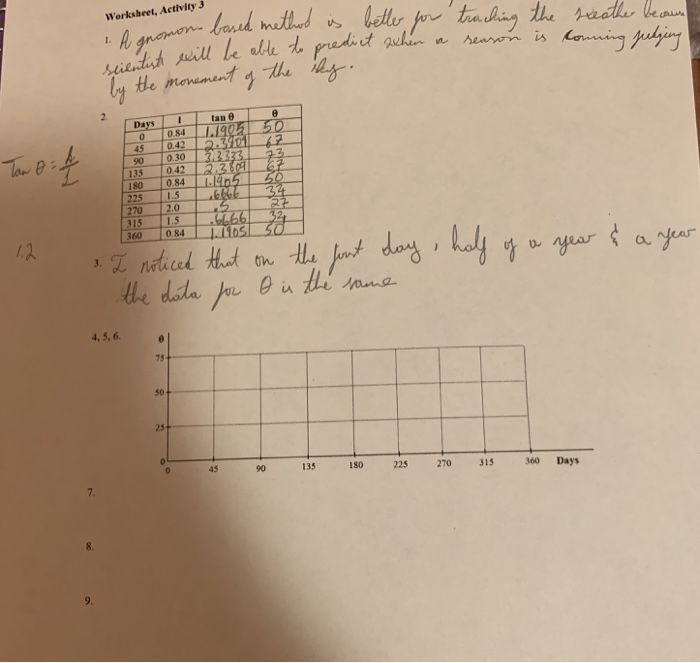 Worksheet, Activity 3
1. A gnomon-based method is better for tracking the weather because
scientist will be able to predict when a season is coming judging
by the movement of the sky.
2.
Days l tan θ θ
0 0.84 1.1905 50
45 0.42 2.3809 67
90 0.30 3.3333 73
135 0.42 2.3809 67
180 0.84 1.1905 50
225 1.5 .6666 34
270 2.0 .5 27
315 1.5 .6666 34
360 0.84 1.1905 50
Tan θ =
1.2
3. I noticed that on the first day, half of a year & a year
the data for θ is the same
4, 5, 6.
θ
75
50
25
0
0 45 90 135 180 225 270 315 360 Days
7.
8.
9.